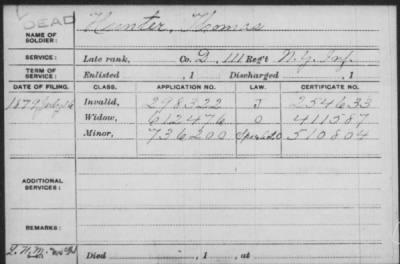 DEAD
NAME OF SOLDIER: Hunter, Thomas
SERVICE: Late rank, Co. D, 111 Reg't N.Y. Inf.
TERM OF SERVICE: Enlisted , 1 Discharged , 1
DATE OF FILING. CLASS. APPLICATION NO. LAW. CERTIFICATE NO.
1879 July Invalid, 298322 J 254633
Widow, 612476 O 411587
Minor, 736200 510804
ADDITIONAL SERVICES:
REMARKS:
Died , 1 , at